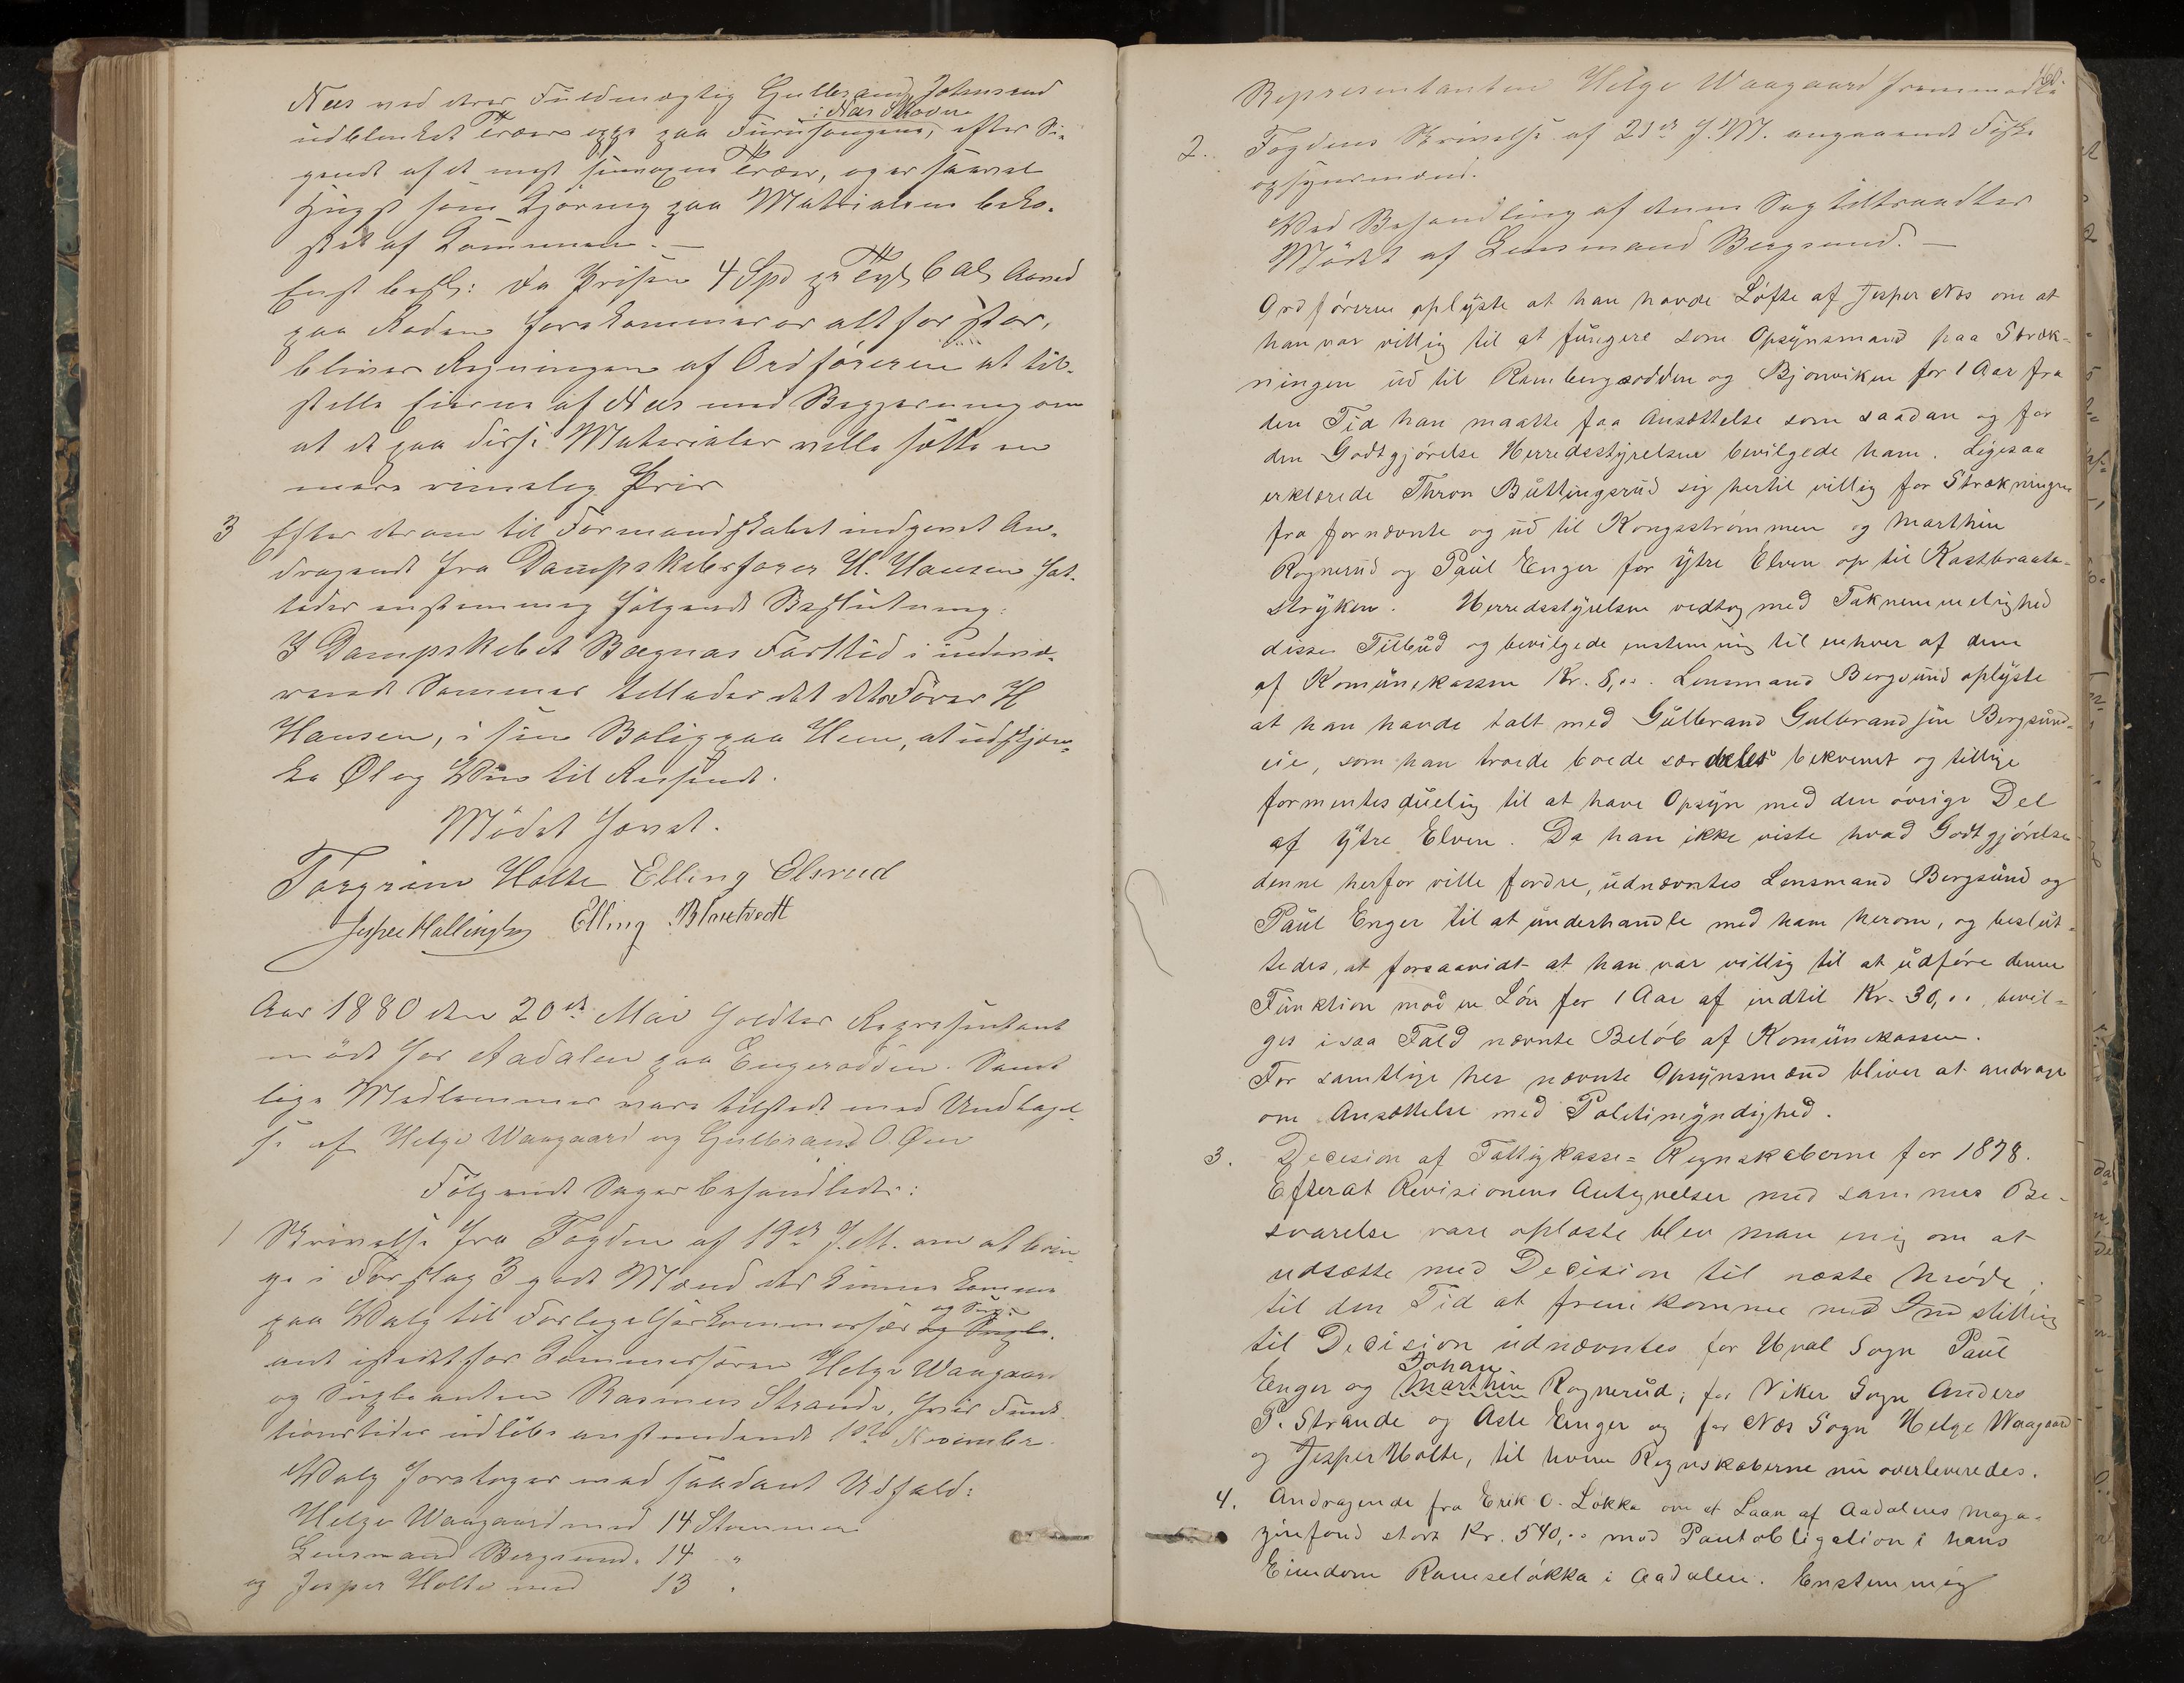 Næs ved deres Fuldmægtig Gulbrand Johnsrud
i Næs Skovn
udblinket Træer paa Furusaugene, efter Si-
gende af de mest Træer, og er saavel
Hugst som Kjøring paa Materialerne beko-
stet af Kommunen. —
Enst besl: Da Prisen 4 Spd pr Tylt 6 Al
paa Roden forekommer er alt for stor,
bliver Regningen af Ordføreren at til-
stille Eierne af Næs med Begjæring om
at de paa disse Materialer ville sætte en
mere rimelig Pris
3 Efter derom til Formandskabet indgivet An-
dragende fra Dampskibsfører H. Hansen fat-
tedes enstemmig følgende Beslutning:
I Dampskibet Bægnas Farttid i indevæ-
rende Sommer tillades det dets Fører H
Hansen, i sin Bolig paa Hen, at udskjæn-
ke Øl og Vin til Reisende.
Mødet hævet.
Torgrim Holte Elling Elsrud
Jesper Hallingby Elling Blaktvedt
Aar 1880 den 20de Mai holdtes Repræsentant
møde for Aadalen paa Engerodden. Samt
lige Medlemmer vare tilstede med Undtagel
se af Helge Waagaard og Gulbrand O. Øen
Følgende Sager behandledes:
1 Skrivelse fra Fogden af 19de f. M. om at brin
ge i Forslag 3 gode Mænd der kunne komme
og Sup-
paa Valg til Forligelseskommissær og Suple-
ant istedetfor Kommissæren Helge Waagaard
og Supleanten Rasmus Strande, hvis Funk
tionstider udløbe anstundende 1ste November.
Valg foretoges med saadant Udfald:
Helge Waagaard med 14 Stemmer
Lensmand Bergsund. 14 "
og Jesper Holte med 13 "
160.
Representanten Helge Waagaard fremmødte
2. Fogdens Skrivelse af 23de f. M. angaaende Fiske
opsynsmænd.
Ved Behandling af denne Sag tiltraadtes
Mødet af Lensmand Bergsund. —
Ordføreren oplyste at han havde Løfte af Jesper Næs om at
han var villig til at fungere som Opsynsmand paa Stræk-
ningen ud til Rambergsodden og Bjonviken for 1 Aar fra
den Tid han maatte faa Ansættelse som saadan og for
den Godtgjørelse Herredsstyrelsen bevilgede ham. Ligesaa
erklærede Thron Buttingsrud sig hertil villig for Strækningen
fra fornævnte og ud til Kongsstrømmen og Marthin
Rognerud og Paul Enger for ytre Elven op til Kastbraata-
stryken. Herredsstyrelsen vedtog med Taknemmelighed
disse Tilbud og bevilgede enstemmig til enhver af dem
af Komunekassen Kr. 8,00. Lensmand Bergsund oplyste
at han havde talt med Gulbrand Gulbrandsen Bergsund-
eie, som han troede boede særdeles bekvemt og tillige
formentes duelig til at have Opsyn med den øvrige Del
af ytre Elven. Da han ikke viste hvad Godtgjørelse
denne herfor ville fordre, udnævntes Lensmand Bergsund og
Paul Enger til at underhandle med ham herom, og beslut-
tedes, at forsaavidt at han var villig til at udføre denne
Funktion mod en Løn for 1 Aar af indtil Kr. 30,00, bevil-
ges isaa Fald nævnte Beløb af Komunekassen.
For samtlige her nævnte Opsynsmænd bliver at andrage
om Ansættelse med Politimyndighed.
3. Decesion af Fattigkasse-Regnskaberne for 1878.
Efterat Revisionens Antegnelser med sammes Be-
svarelse vare oplæste blev man enig om at
udsætte med Decision til næste Møde;
til den Tid at fremkomme med Indstilling
til Decision udnævntes for Hval Sogn Paul
Johan
Enger og Marthin Rognerud, for Viker Sogn Anders
P. Strande og Asle Enger og for Næs Sogn Helge Waagaard
og Jesper Holte, til hvem Regnskaberne nu overleveredes.
4. Andragende fra Erik O. Løkka om et Laan af Aadalens Maga-
zinfond stort Kr. 540,00 mod Pantobligation i hans
Eiendom Ramseløkka i Aadalen. Enstemmig